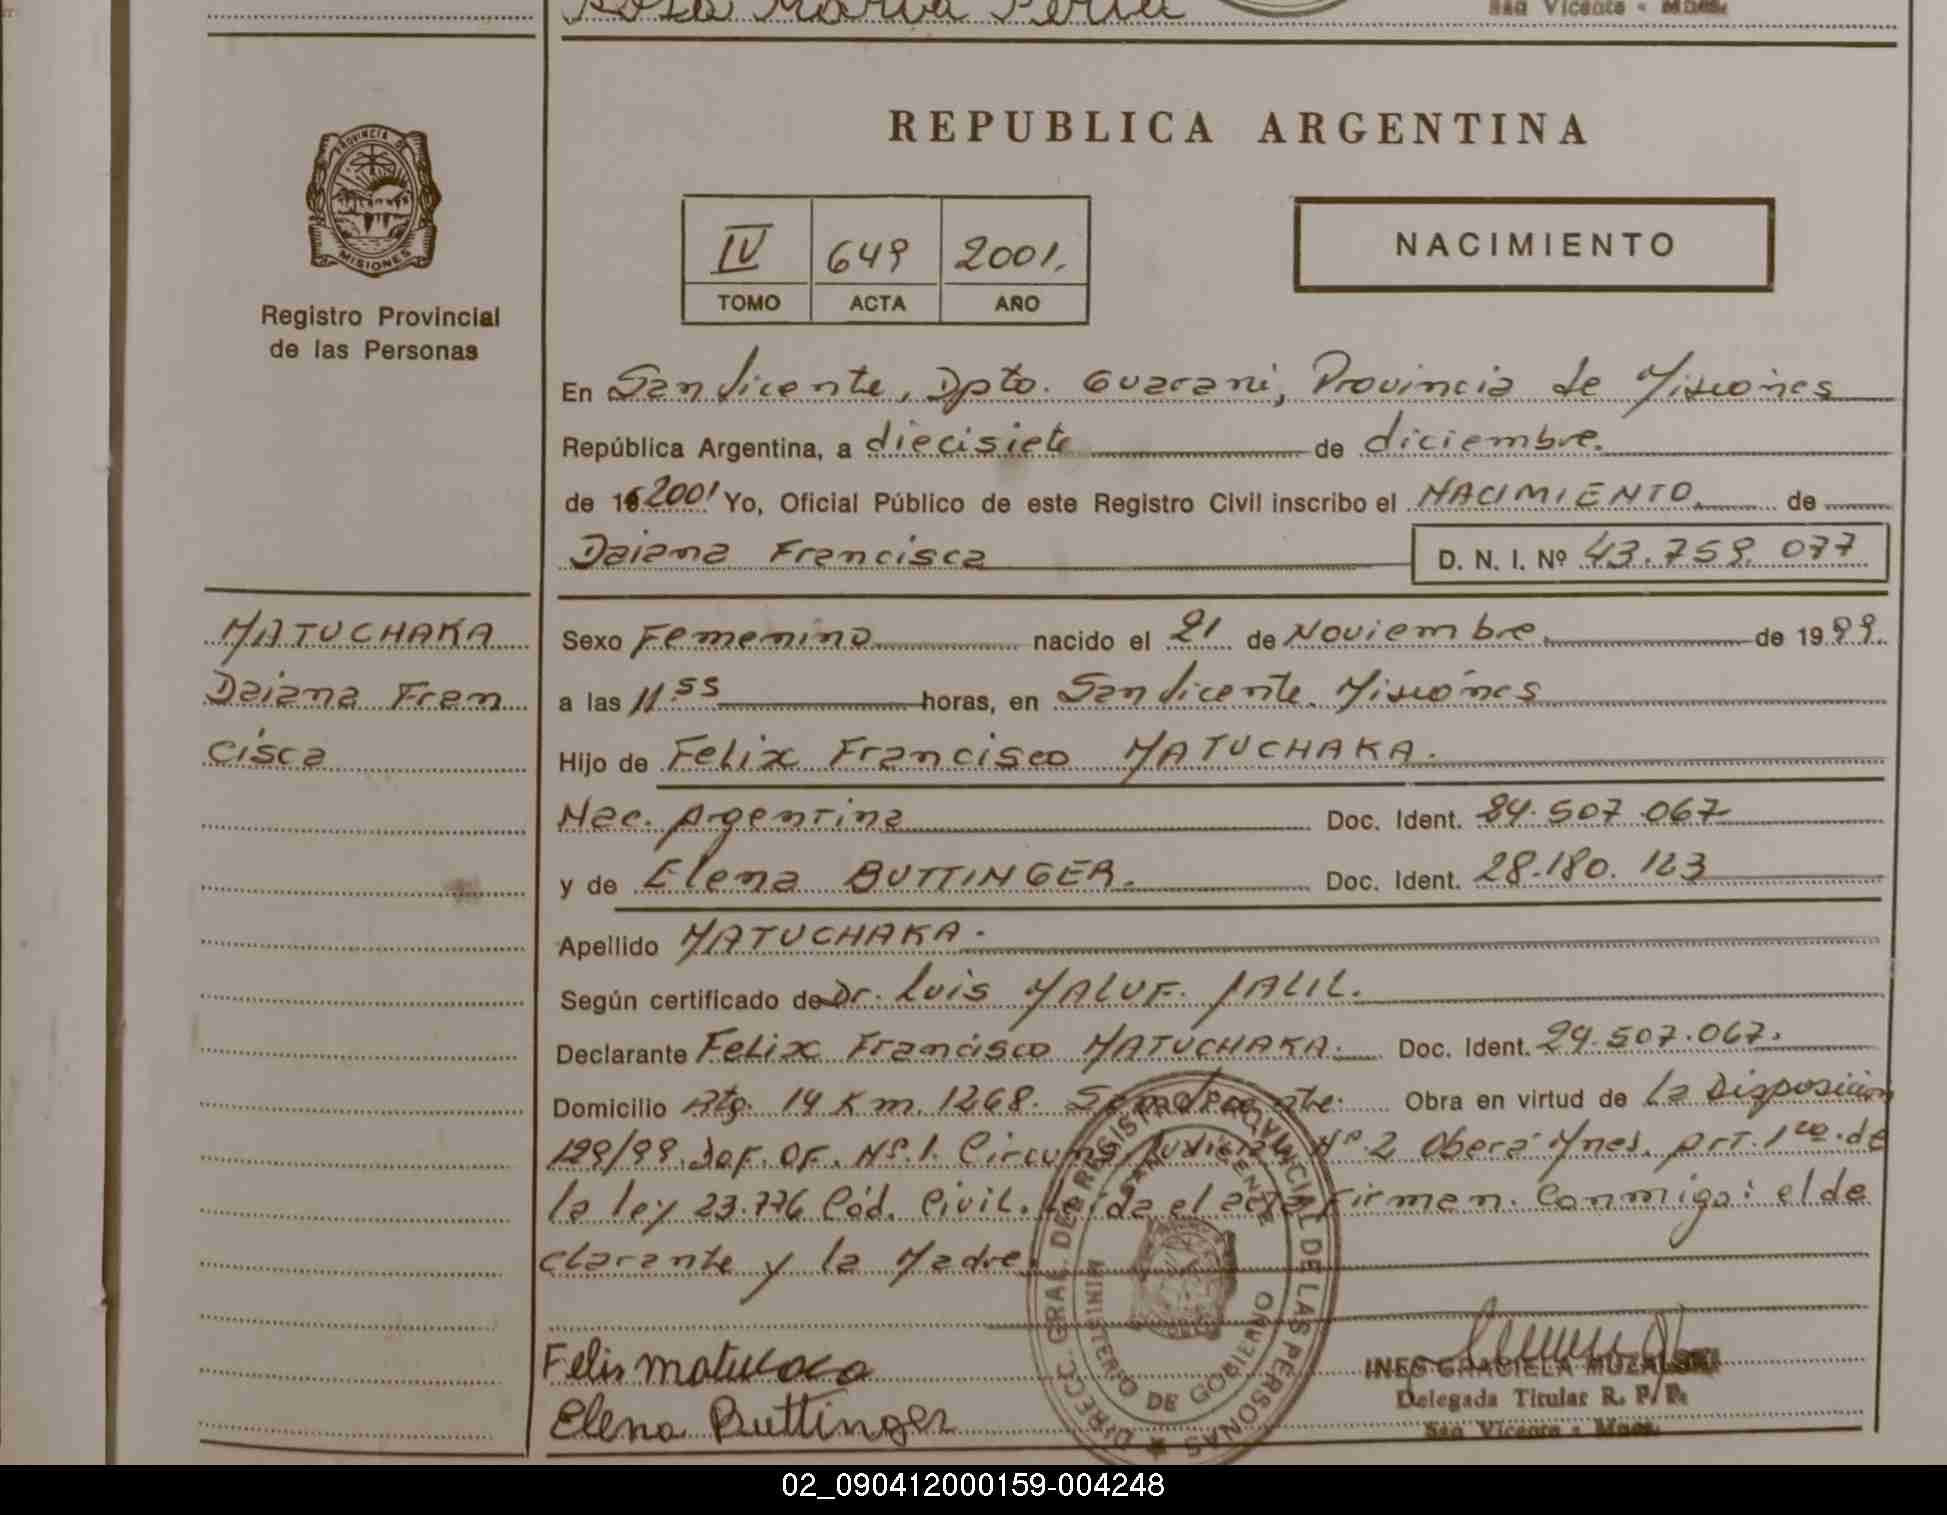 Rosa María
San Vicente - Mnes.
PROVINCIA DE MISIONES
Registro Provincial
de las Personas
REPUBLICA ARGENTINA
IV 649 2001.
TOMO ACTA AÑO
NACIMIENTO
En San Vicente, Dpto. Guarani, Provincia de Misiones
República Argentina, a diecisiete de diciembre.
de 2001 Yo, Oficial Público de este Registro Civil inscribo el NACIMIENTO. de
Daiana Francisca D. N. I. Nº 43.759.077
MATUCHAKA
Daiana Fran
cisca
Sexo Femenino nacido el 21 de Noviembre. de 1999.
a las 11.55 horas, en San Vicente. Misiones
Hijo de Felix Francisco MATUCHAKA.
Nac. Argentina Doc. Ident. 507.067
y de Elena BUTTINGER. Doc. Ident. 28.180. 123
Apellido MATUCHAKA.
Según certificado de Dr. Luis MALUF. JALIL.
Declarante Felix Francisco MATUCHAKA. Doc. Ident. 29.507.067.
Domicilio Rta. 14 Km. 1268. San Vicente. Obra en virtud de la Disposición
199/99. OF. Nº.1. Circuns. Judicial Nº 2 Oberá Mnes. prt. 1ro. de
la ley 23.776 Cód. Civil. Leída el acta firman. Conmigo: el de
clarante y la Madre.
DIRECC. GRAL. DE REGISTRO PROVINCIAL DE LAS PERSONAS
SAN VICENTE
MINISTERIO DE GOBIERNO
Felis matucaca
Elena Buttinger
INES GRACIELA
Delegada Titular R. P. P.
San Vicente - Mnes.
02_090412000159-004248